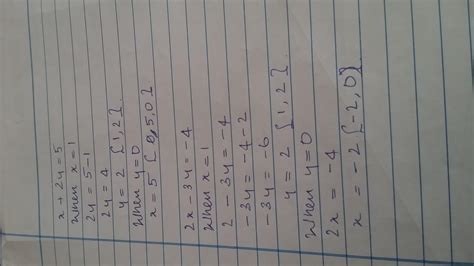 x + 2y = 5
When x = 1
2y = 5-1
2y = 4
y = 2 {1, 2}
When y = 0
x = 5 {5, 0}
2x - 3y = -4
When x = 1
2 - 3y = -4
-3y = -4-2
-3y = -6
y = 2 {1, 2}
When y = 0
2x = -4
x = -2 {-2, 0}